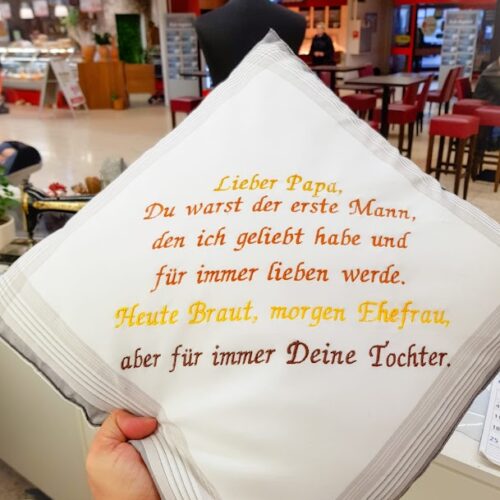 Lieber Papa,
Du warst der erste Mann,
den ich geliebt habe und
für immer lieben werde.
Heute Braut, morgen Ehefrau,
aber für immer Deine Tochter.